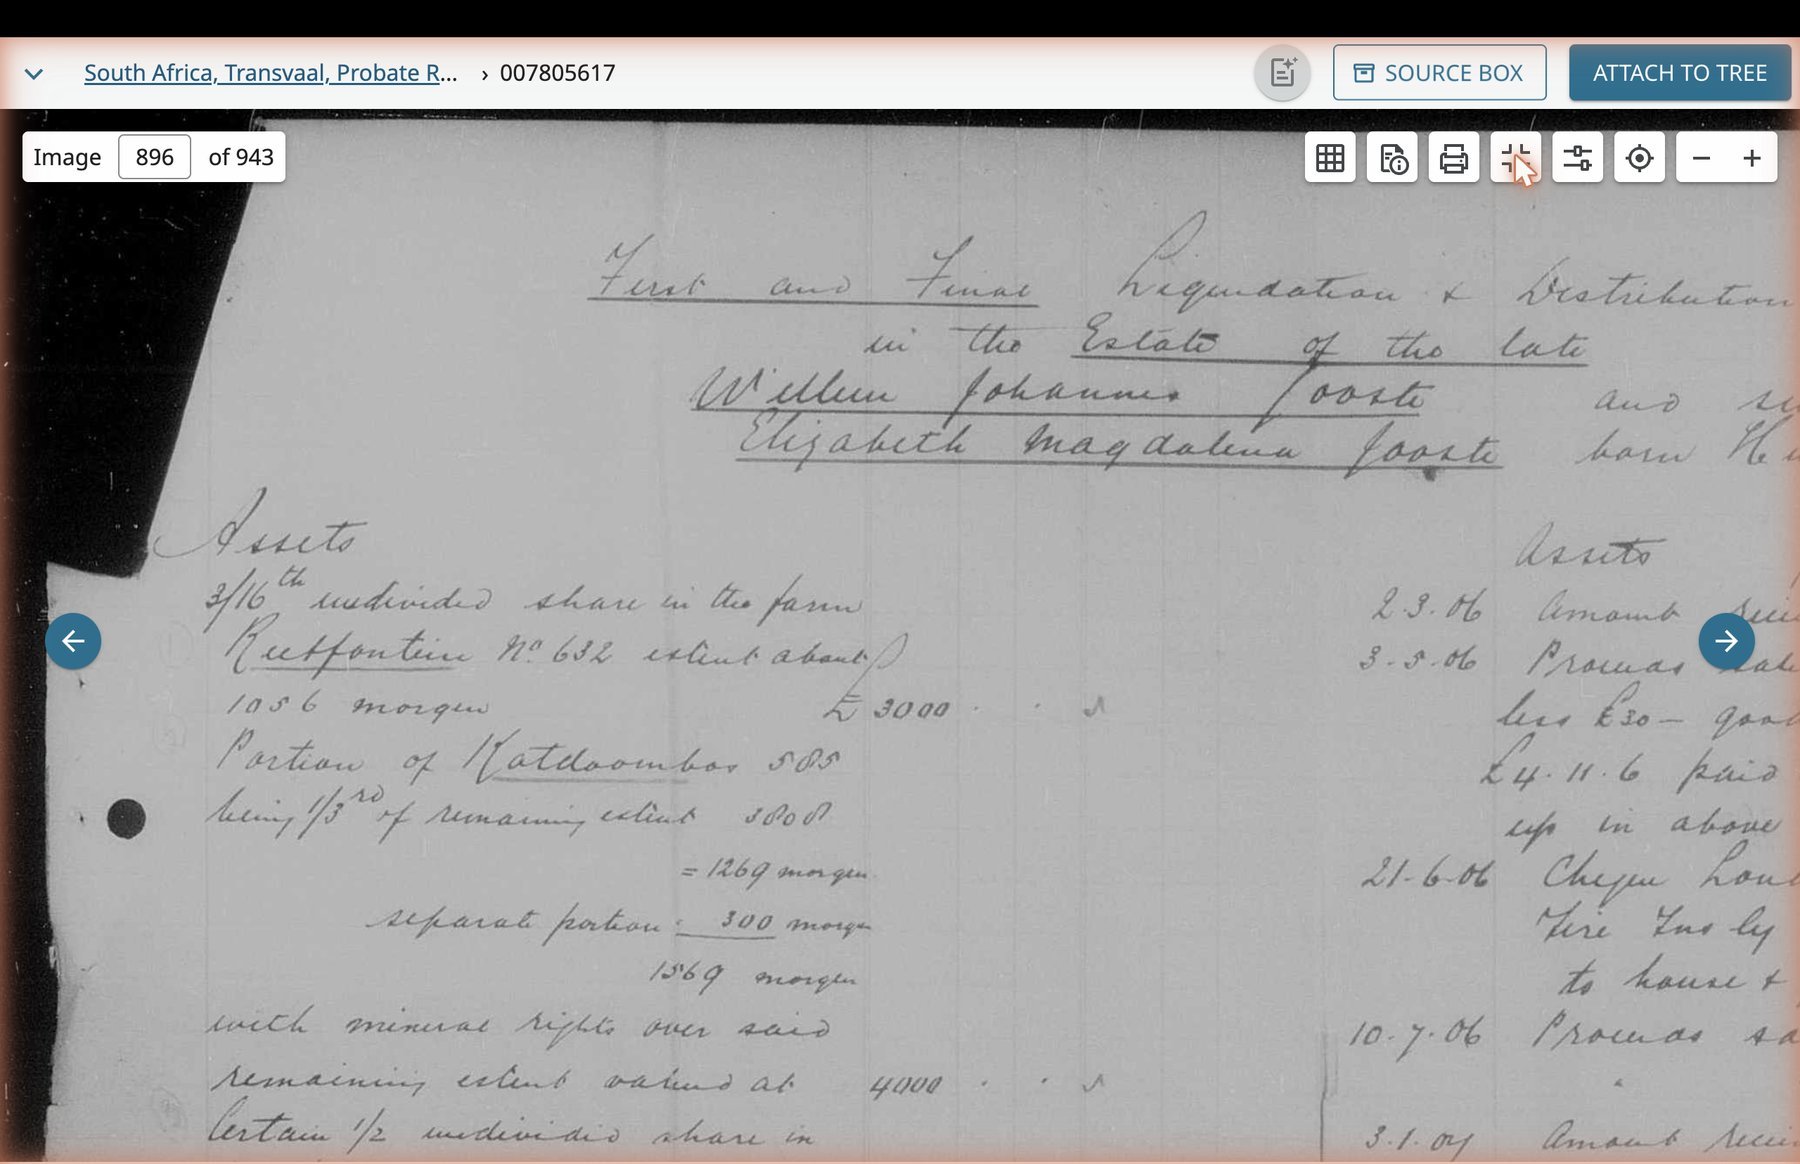 South Africa, Transvaal, Probate R... › 007805617
SOURCE BOX
ATTACH TO TREE
Image 896 of 943
First and Final Liquidation & Distribution
in the Estate of the late
Willem Johannes Jooste and
Elizabeth Magdalena Jooste born
Assets
3/16th undivided share in the farm
Rietfontein No. 632 extent about
1056 morgen £ 3000
Portion of Katdoornbos 585
being 1/3rd of remaining extent 3808
= 1269 morgen
separate portion 300 morgen
1569 morgen
with mineral rights over said
remaining extent valued at 4000
Certain 1/2 undivided share in
Assets
2.3.06 Amount
3-5-06 Proceeds
less £30 -
£4.11.6 paid
up in above
21-6-06 Cheque
Fire Ins
to house +
10.7.06 Proceeds
Amount